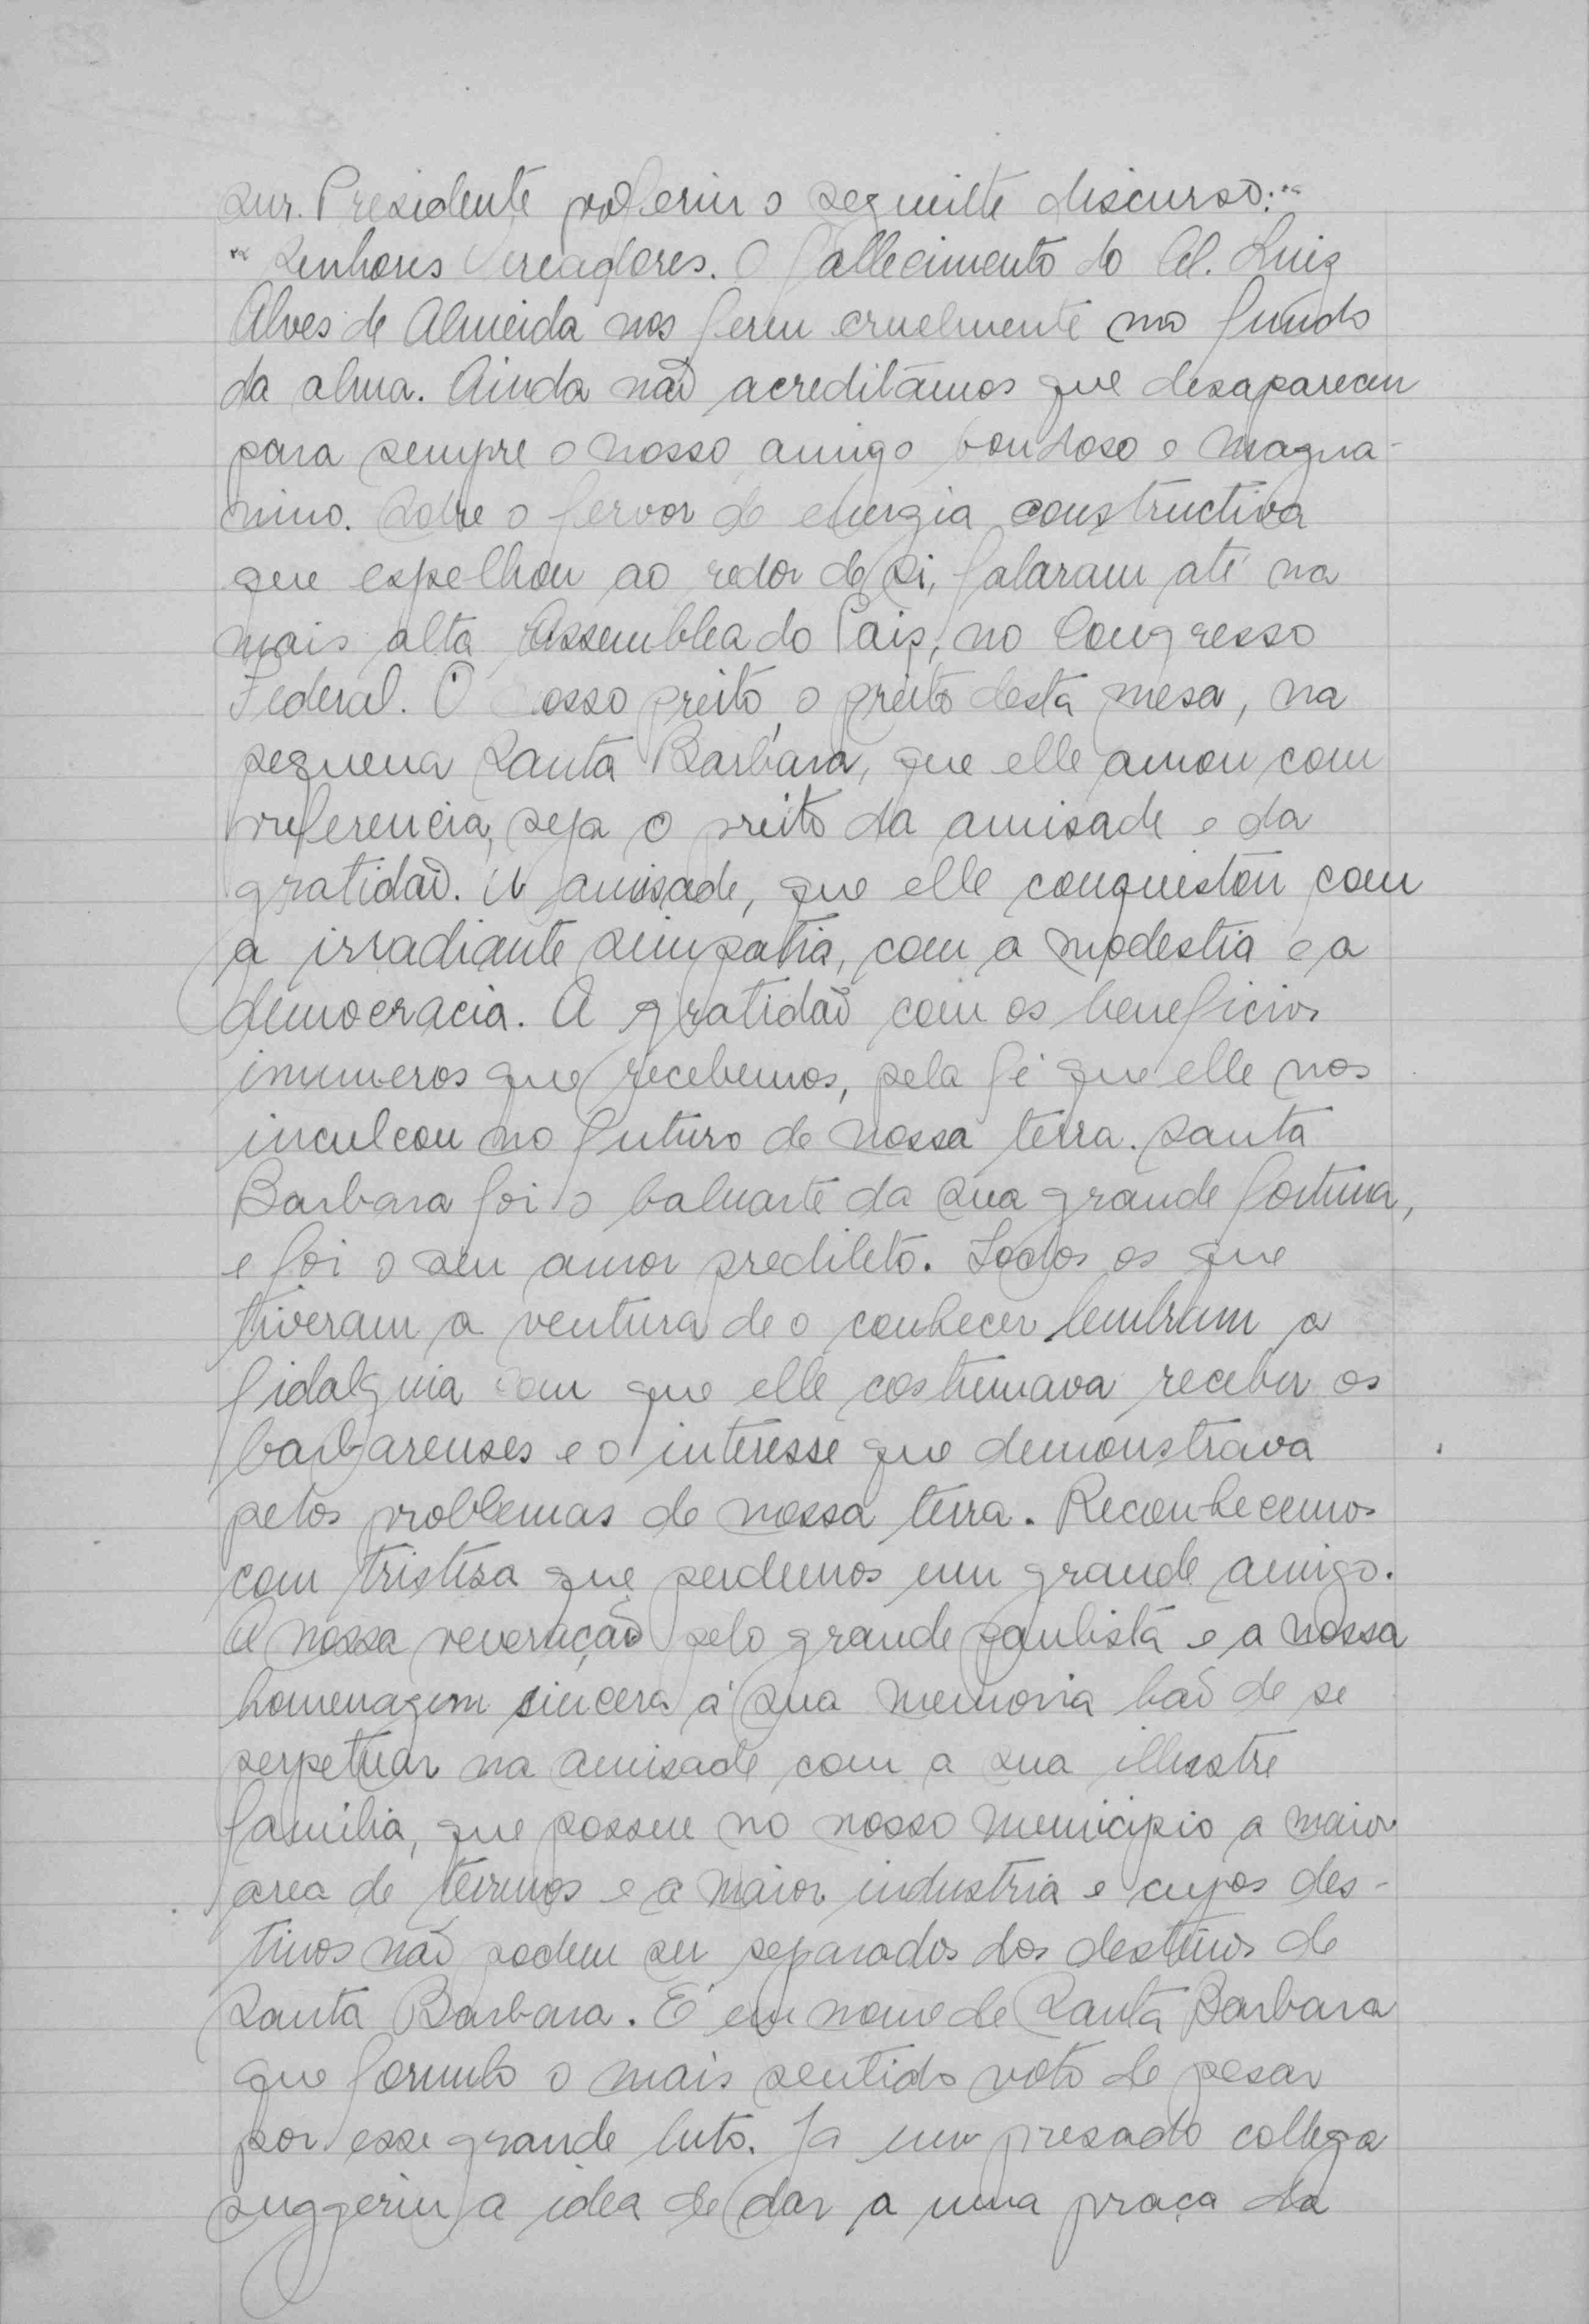 snr. Presidente proferiu o seguinte discurso:"
"Senhores Vereadores. O fallecimento do Cel. Luiz
Alves de Almeida nos feriu cruelmente no fundo
da alma. Ainda não acreditámos que desapareceu
para sempre o nosso amigo bondoso e magna-
nimo. Sobre o fervor de energia constructiva
que espelhou ao redor de si, falaram até na
mais alta Assemblea do Pais, no Congresso
Federal. O nosso preito, o preito desta mesa, na
pequena Santa Barbara, que elle amou com
preferencia, seja o preito da amisade e da
gratidaõ. A amisade, que elle conquistou com
a irradiante simpatia, com a modestia e a
democracia. A gratidaõ com os beneficios
inumeros que recebemos, pela fé que elle nos
inculcou no futuro de nossa terra. Santa
Barbara foi o baluarte da sua grande fortuna,
e foi o seu amor predileto. Todos os que
tiveram a ventura de o conhecer lembram a
fidalguia com que elle costumava receber os
barbarenses e o interesse que demonstrava
pelos problemas de nossa terra. Reconhecemos
com tristesa que perdemos um grande amigo.
A nossa veneração pelo grande paulista e a nossa
homenagem sincera á sua memoria haõ de se
perpetuar na amisade com a sua illustre
familia, que possue no nosso municipio a maior
area de terrenos e a maior industria e cujos des-
tinos naõ podem ser separados dos destinos de
Santa Barbara. É em nome de Santa Barbara
que formulo o mais sentido voto de pesar
por esse grande luto. Ja um presado collega
suggeriu a idea de dar a uma praça da